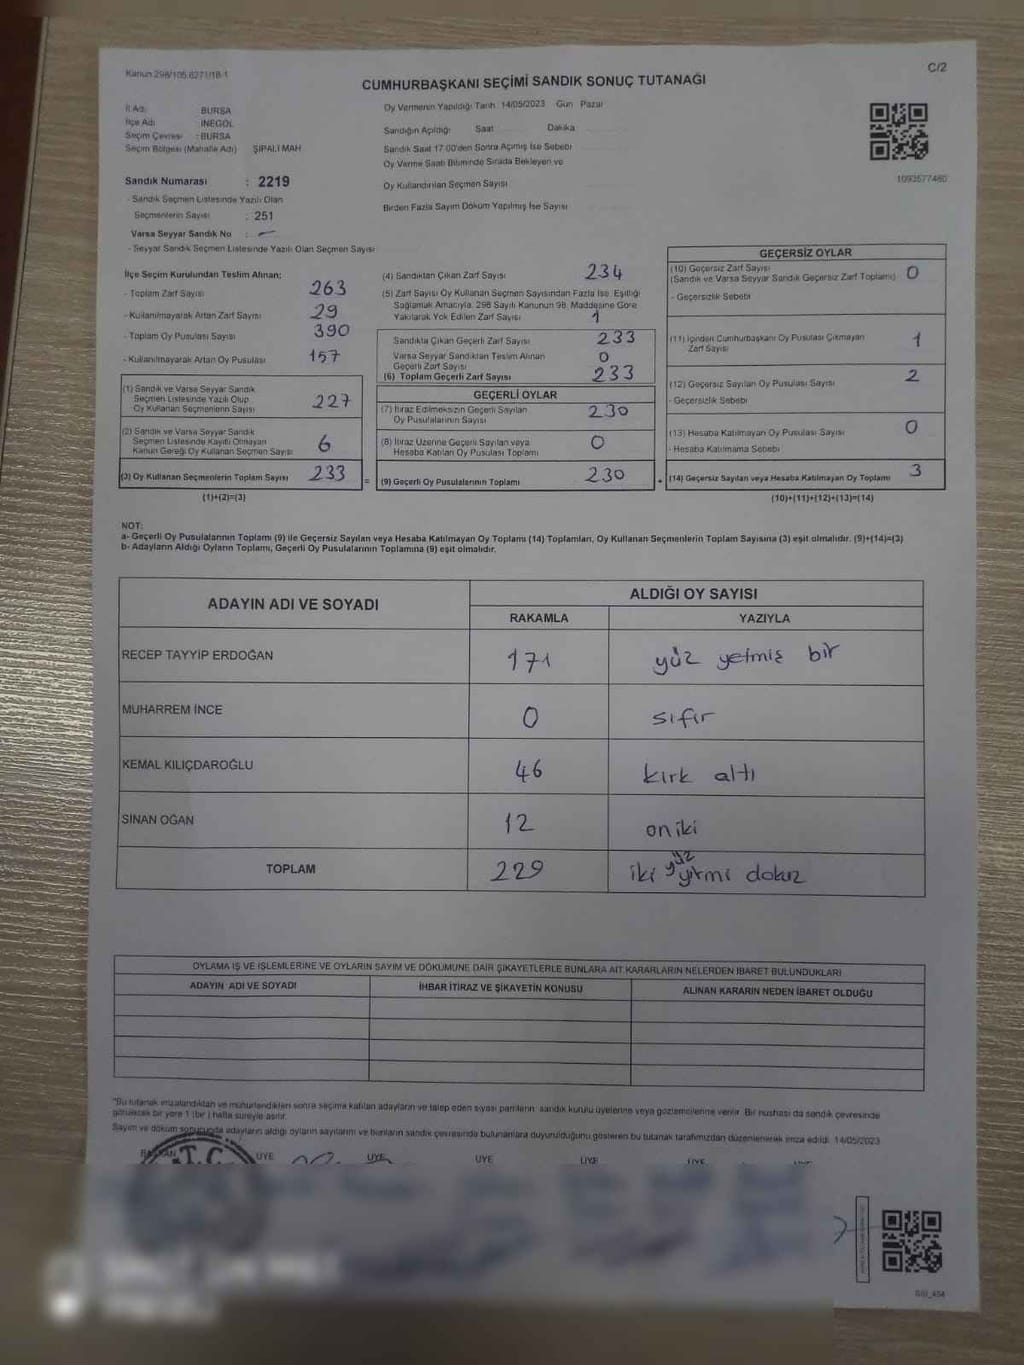 Kanun 298/105,6271/18-1
C/2
CUMHURBAŞKANI SEÇİMİ SANDIK SONUÇ TUTANAĞI
İl Adı : BURSA
İlçe Adı : İNEGÖL
Seçim Çevresi : BURSA
Seçim Bölgesi (Mahalle Adı) ŞİPALİ MAH
Sandık Numarası : 2219
- Sandık Seçmen Listesinde Yazılı Olan
Seçmenlerin Sayısı : 251
Varsa Seyyar Sandık No : -
- Seyyar Sandık Seçmen Listesinde Yazılı Olan Seçmen Sayısı
Oy Vermenin Yapıldığı Tarih 14/05/2023 Gün Pazar
Sandığın Açıldığı Saat Dakika
Sandık Saat 17.00'den Sonra Açımış İse Sebebi
Oy Verme Saati Bitiminde Sırada Bekleyen ve
Oy Kullandırılan Seçmen Sayısı
Birden Fazla Sayım Döküm Yapılmış İse Sayısı
1093577460
İlçe Seçim Kurulundan Teslim Alınan;
- Toplam Zarf Sayısı 263
- Kullanılmayarak Artan Zarf Sayısı 29
- Toplam Oy Pusulası Sayısı 390
- Kullanılmayarak Artan Oy Pusulası 157
(1) Sandık ve Varsa Seyyar Sandık
Seçmen Listesinde Yazılı Olup
Oy Kullanan Seçmenlerin Sayısı 227
(2) Sandık ve Varsa Seyyar Sandık
Seçmen Listesinde Kayıtlı Olmayan
Kanun Gereği Oy Kullanan Seçmen Sayısı 6
(3) Oy Kullanan Seçmenlerin Toplam Sayısı 233
(1)+(2)=(3)
(4) Sandıktan Çıkan Zarf Sayısı 234
(5) Zarf Sayısı Oy Kullanan Seçmen Sayısından Fazla İse, Eşitliği
Sağlamak Amacıyla, 298 Sayılı Kanunun 98. Maddesine Göre
Yakılarak Yok Edilen Zarf Sayısı 1
Sandıkta Çıkan Geçerli Zarf Sayısı 233
Varsa Seyyar Sandıktan Teslim Alınan
Geçerli Zarf Sayısı 0
(6) Toplam Geçerli Zarf Sayısı 233
GEÇERLİ OYLAR
(7) İtiraz Edilmeksizin Geçerli Sayılan
Oy Pusulalarının Sayısı 230
(8) İtiraz Üzerine Geçerli Sayılan veya
Hesaba Katılan Oy Pusulası Toplamı 0
= (9) Geçerli Oy Pusulalarının Toplamı 230
GEÇERSİZ OYLAR
(10) Geçersiz Zarf Sayısı
(Sandık ve Varsa Seyyar Sandık Geçersiz Zarf Toplamı) 0
- Geçersizlik Sebebi
(11) İçinden Cumhurbaşkanı Oy Pusulası Çıkmayan
Zarf Sayısı 1
(12) Geçersiz Sayılan Oy Pusulası Sayısı 2
- Geçersizlik Sebebi
(13) Hesaba Katılmayan Oy Pusulası Sayısı 0
- Hesaba Katılmama Sebebi
+ (14) Geçersiz Sayılan veya Hesaba Katılmayan Oy Toplamı 3
(10)+(11)+(12)+(13)=(14)
NOT:
a- Geçerli Oy Pusulalarının Toplamı (9) ile Geçersiz Sayılan veya Hesaba Katılmayan Oy Toplamı (14) Toplamları, Oy Kullanan Seçmenlerin Toplam Sayısına (3) eşit olmalıdır. (9)+(14)=(3)
b- Adayların Aldığı Oyların Toplamı, Geçerli Oy Pusulalarının Toplamına (9) eşit olmalıdır.
ADAYIN ADI VE SOYADI
ALDIĞI OY SAYISI
RAKAMLA YAZIYLA
RECEP TAYYİP ERDOĞAN 171 yüz yetmiş bir
MUHARREM İNCE 0 sıfır
KEMAL KILIÇDAROĞLU 46 kırk altı
SİNAN OĞAN 12 oniki
TOPLAM 229 iki yüz yirmi dokuz
OYLAMA İŞ VE İŞLEMLERİNE VE OYLARIN SAYIM VE DÖKÜMÜNE DAİR ŞİKAYETLERLE BUNLARA AİT KARARLARIN NELERDEN İBARET BULUNDUKLARI
ADAYIN ADI VE SOYADI İHBAR İTİRAZ VE ŞİKAYETİN KONUSU ALINAN KARARIN NEDEN İBARET OLDUĞU
"Bu tutanak imzalandıktan ve mühürlendikten sonra seçime katılan adayların ve talep eden siyasi partilerin sandık kurulu üyelerine veya gözlemcilerine verilir. Bir nüshası da sandık çevresinde
görülecek bir yere 1 (bir) hafta süreyle asılır.
Sayım ve döküm sonucunda adayların aldığı oyların sayılarını ve bunların sandık çevresinde bulunanlara duyurulduğunu gösteren bu tutanak tarafımızdan düzenlenerek imza edildi. 14/05/2023
BAŞKAN ÜYE ÜYE ÜYE ÜYE ÜYE
T.C.